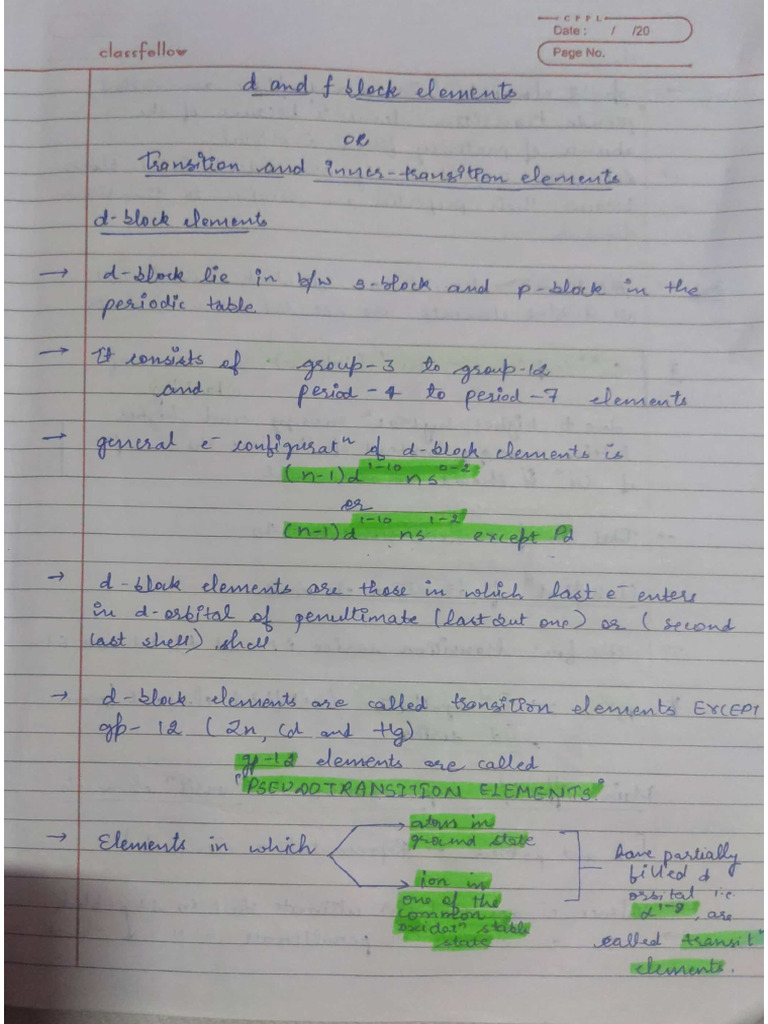 classfollow
CPFL
Date : / /20
Page No.
d and f block elements
OR
Transition and inner-transition elements
d-block elements
→ d-block lie in b/w s-block and p-block in the
periodic table
→ It consists of group-3 to group-12
and period-4 to period-7 elements
→ general e⁻ configuratⁿ of d-block elements is
(n-1)d¹⁻¹⁰ ns⁰⁻²
or
(n-1)d¹⁻¹⁰ ns¹⁻² except Pd
→ d-block elements are those in which last e⁻ enters
in d-orbital of penultimate (last but one) or (second
last shell) shell
→ d-block elements are called transition elements EXCEPT
gp-12 (Zn, Cd and Hg)
gp-12 elements are called
"PSEUDOTRANSITION ELEMENTS."
→ Elements in which
atom in
ground state
ion in
one of the
common
oxidatⁿ stable
state
have partially
filled d
orbital i.e.
d¹⁻⁹, are
called transitⁿ
elements.